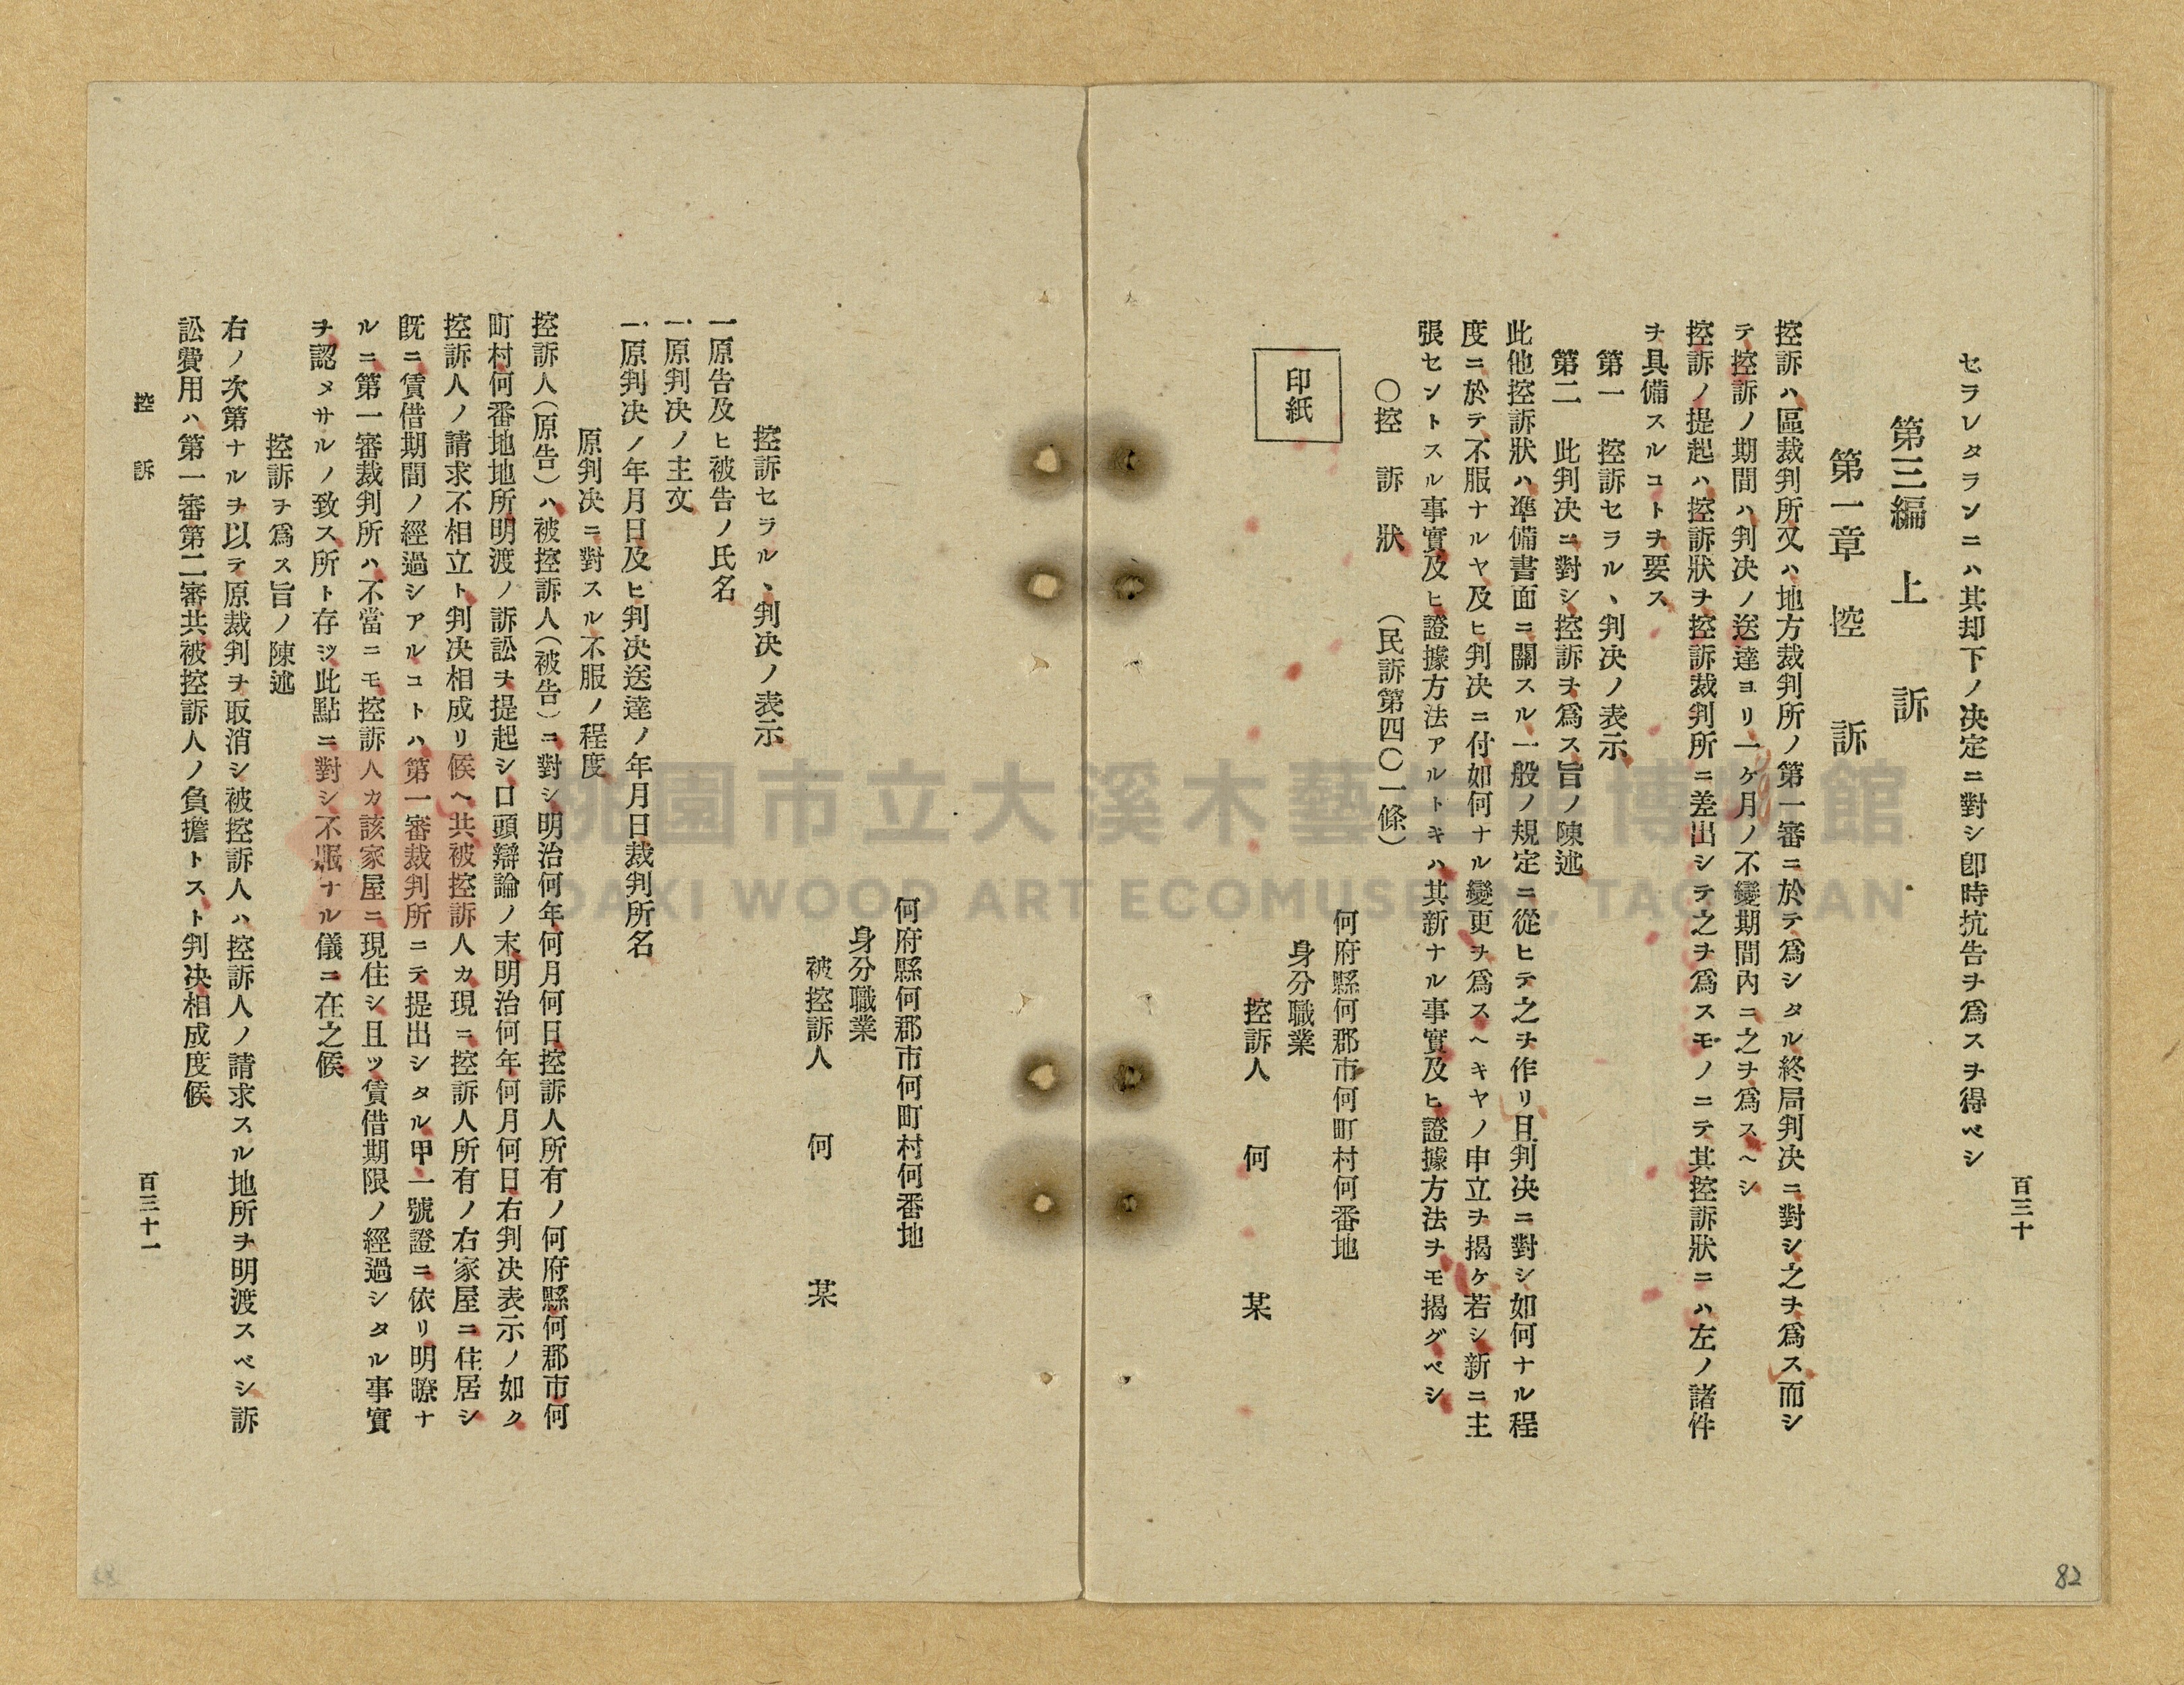 百三十
セラレタランニハ其却下ノ决定ニ對シ卽時抗告ヲ爲スヲ得ベシ
第三編　上　訴
第一章　控　訴
控訴ハ區裁判所又ハ地方裁判所ノ第一審ニ於テ爲シタル終局判决ニ對シ之ヲ爲ス而シ
テ控訴ノ期間ハ判决ノ送達ヨリ一ヶ月ノ不變期間內ニ之ヲ爲スヘシ
控訴ノ提起ハ控訴狀ヲ控訴裁判所ニ差出シテ之ヲ爲スモノニテ其控訴狀ニハ左ノ諸件
ヲ具備スルコトヲ要ス
第一　控訴セラルヽ判决ノ表示
第二　此判决ニ對シ控訴ヲ爲ス旨ノ陳述
此他控訴狀ハ準備書面ニ關スル一般ノ規定ニ從ヒテ之ヲ作リ且判决ニ對シ如何ナル程
度ニ於テ不服ナルヤ及ヒ判决ニ付如何ナル變更ヲ爲スヘキヤノ申立ヲ揭ケ若シ新ニ主
張セントスル事實及ヒ證據方法アルトキハ其新ナル事實及ヒ證據方法ヲモ揭グベシ
〇控　訴　狀　（民訴第四〇一條）
印紙
何府縣何郡市何町村何番地
身分職業
控訴人　何　某
82
何府縣何郡市何町村何番地
身分職業
被控訴人　何　某
控訴セラルヽ判决ノ表示
一原告及ヒ被告ノ氏名
一原判决ノ主文
一原判决ノ年月日及ヒ判决送達ノ年月日裁判所名
原判决ニ對スル不服ノ程度
控訴人（原告）ハ被控訴人（被告）ニ對シ明治何年何月何日控訴人所有ノ何府縣何郡市何
町村何番地地所明渡ノ訴訟ヲ提起シ口頭辯論ノ末明治何年何月何日右判决表示ノ如ク
控訴人ノ請求不相立ト判决相成リ候ヘ共被控訴人カ現ニ控訴人所有ノ右家屋ニ住居シ
既ニ賃借期間ノ經過シアルコトハ第一審裁判所ニテ提出シタル甲一號證ニ依リ明瞭ナ
ルニ第一審裁判所ハ不當ニモ控訴人カ該家屋ニ現住シ且ツ賃借期限ノ經過シタル事實
ヲ認メサルノ致ス所ト存シ此點ニ對シ不服ナル儀ニ在之候
控訴ヲ爲ス旨ノ陳述
右ノ次第ナルヲ以テ原裁判ヲ取消シ被控訴人ハ控訴人ノ請求スル地所ヲ明渡スベシ訴
訟費用ハ第一審第二審共被控訴人ノ負擔トスト判决相成度候
控　訴
百三十一
桃園市立大溪木藝生態博物館
DAXI WOOD ART ECOMUSEUM, TAOYUAN